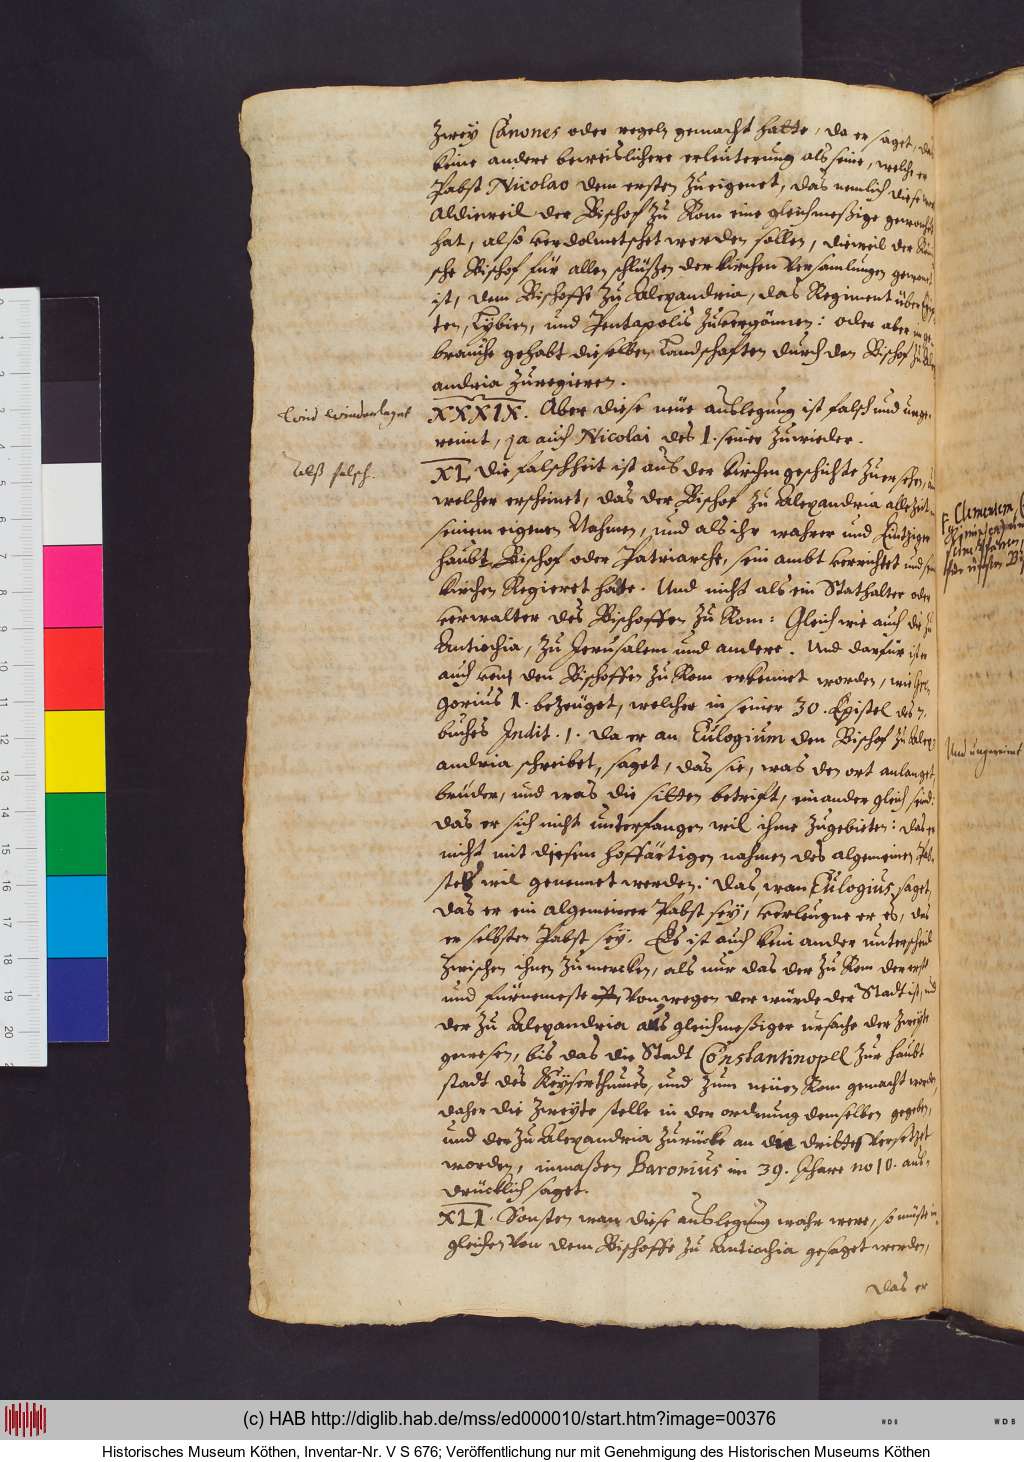 Zwey Canones oder regeln gemacht hatte, da er saget, das
keine andere beweislichere erleuterung als seine, welche er
Pabst Nicolao dem ersten zueigenet, das nemlich diese wort
Aldieweil der Bischof zu Rom eine gleichmeßige gewonheit
hat, also verdolmetschet werden sollen, dieweil der Römi
sche Bischof für allen schlüßen der Kirchen Versamlungen gewonet
ist, dem Bischoffe zu Alexandria, das Regiment über Egyp
ten, Lybien, und Pentapolis zuvergönnen: oder aber im ge
brauche gehabt dieselben Landschaften durch den Bischof zu Alex
andria zuregieren.
Wird wiederleget
XXXIX. Aber diese neüe auslegung ist falsch und unge-
reimt, ja auch Nicolai des I. seiner zuwieder.
Alß falsch.
XL. Die falschheit ist aus der Kirchen geschichte zuersehen, in
welcher erscheinet, das der Bischof zu Alexandria allezeit in
seinem eigenen Nahmen, und als ihr wahrer und Eintziger
haubt Bischof oder Patriarche, sein ambt verrichtet und sein
Kirchen Regieret hatte. Und nicht als ein Stathalter oder
verwalter des Bischoffen zu Rom: Gleich wie auch die zu
Antiochia, zu Jerusalem und andere. Und darfür ist er
auch von den Bischoffen zu Rom erkennet worden, wie Gre
gorius I. bezeüget, welcher in seiner 30. Epistel des 7.
buches Indit. 1. da er an Eulogium den Bischof zu Alex-
andria schreibet, saget, das sie, was den ort anlanget,
brüder, und was die sitten betrift, einander gleich seind:
das er sich nicht unterfangen wil ihme zugebieten: das er
nicht mit diesem hoffärtigen nahmen des algemeinen Pab-
stes wil genennet werden: das, wan Eulogius, saget,
das er ein algemeiner Pabst sey, verleugne er es, das
er selbsten Pabst sey. Es ist auch kein ander unterscheid
zwischen ihnen zumercken, als nur das der zu Rom der erste
und fürnemeste von wegen der würde der Stadt ist, und
der zu Alexandria aus gleichmeßiger ursache der zweyte
gewesen, bis das die Stadt Constantinopell zur haubt
stadt des Keyserthumes, und zum neüen Rom gemacht worden,
daher die zweyte stelle in der ordnung demselben gegeben,
und der zu Alexandria zurücke an die dritte versetzet
worden, inmaßen Baronius im 39. Jhare no 10. aus-
drücklich saget.
XLI. Sonsten wan diese auslegung wahr were, so müste in
gleichen von dem Bischoffe zu Antiochia gesaget werden,
das er
Und ungereimt
(c) HAB http://diglib.hab.de/mss/ed000010/start.htm?image=00376
WDB
WDB
Historisches Museum Köthen, Inventar-Nr. V S 676; Veröffentlichung nur mit Genehmigung des Historischen Museums Köthen